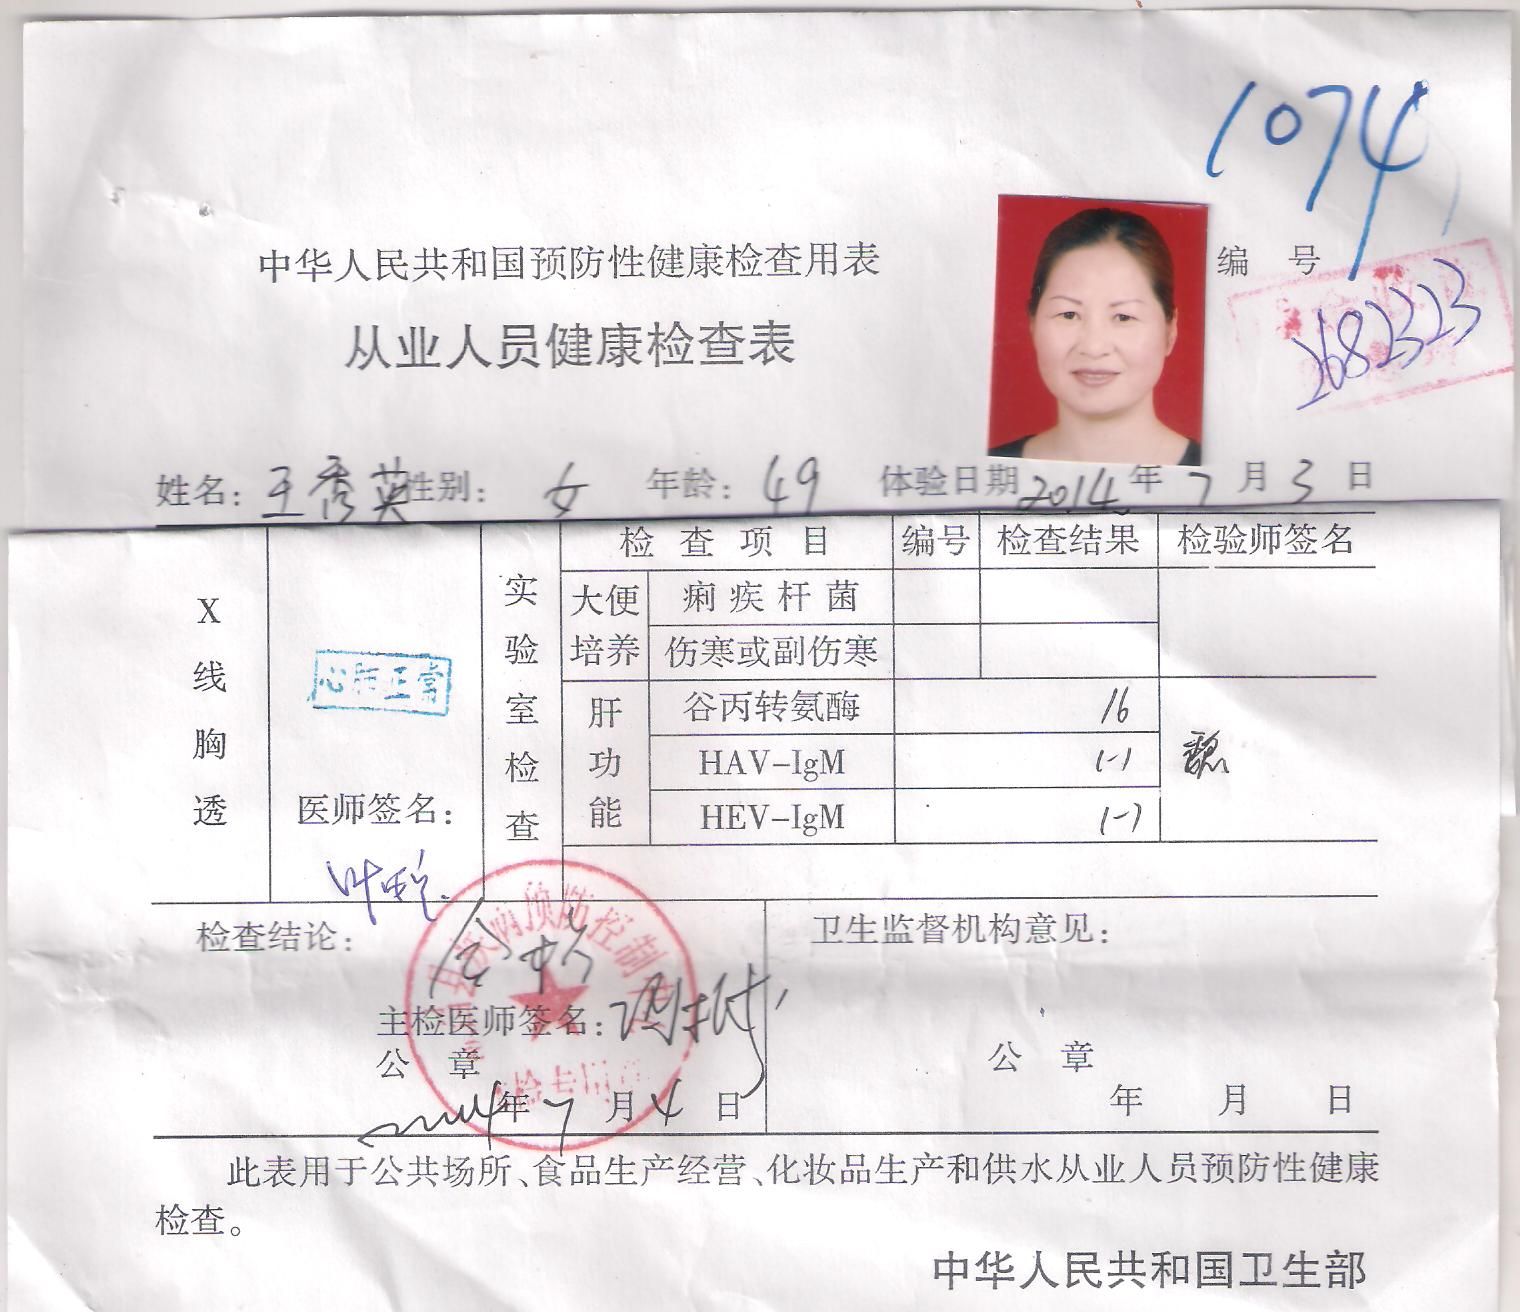 1074
中华人民共和国预防性健康检查用表
编 号
2682323
从业人员健康检查表
姓名: 王秀英 性别: 女 年龄: 49 体验日期 2014 年 7 月 3 日
X线胸透
心肺正常
医师签名:
实验室检查
检 查 项 目 编号 检查结果 检验师签名
大便培养 痢疾杆菌
伤寒或副伤寒
肝功能 谷丙转氨酶 16
HAV-IgM (-)
HEV-IgM (-)
检查结论: 合格
主检医师签名:
公 章
2014 年 7 月 4 日
卫生监督机构意见:
公 章
年 月 日
此表用于公共场所、食品生产经营、化妆品生产和供水从业人员预防性健康
检查。
中华人民共和国卫生部